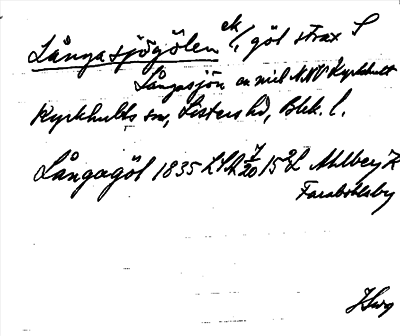 Långasjögölen ek/, göl strax S
Långasjön en mil NNV Kyrkhult
Kyrkhults sn, Listers hd, Blek. l.
Långagöl 1835 LSA 7/20 15 Ahlberg K
Farabolsby